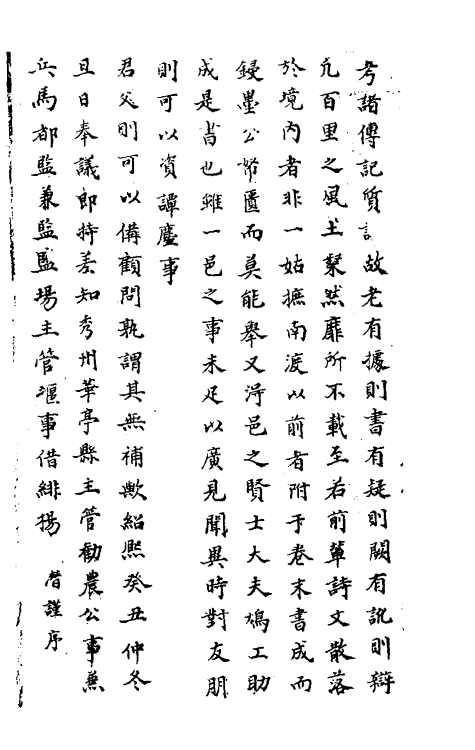 考諸傳記質訁故老有據則書有疑則闕有訛則辯
凢百里之風土粲然靡所不載至若前軰詩文散落
於境内者非一姑摭南渡以前者附于卷末書成而
鋟墨公帑匱而莫能舉又得邑之賢士大夫鳩工助
成是書也雖一邑之事未足以廣見聞異時對友朋
則可以資譚麈事
君父則可以備顧問孰謂其無補歟紹熙癸丑仲冬
旦日奉議郎特差知秀州華亭縣主管勸農公事兼
兵馬都監兼監鹽場主管堰事借緋楊
潛謹序